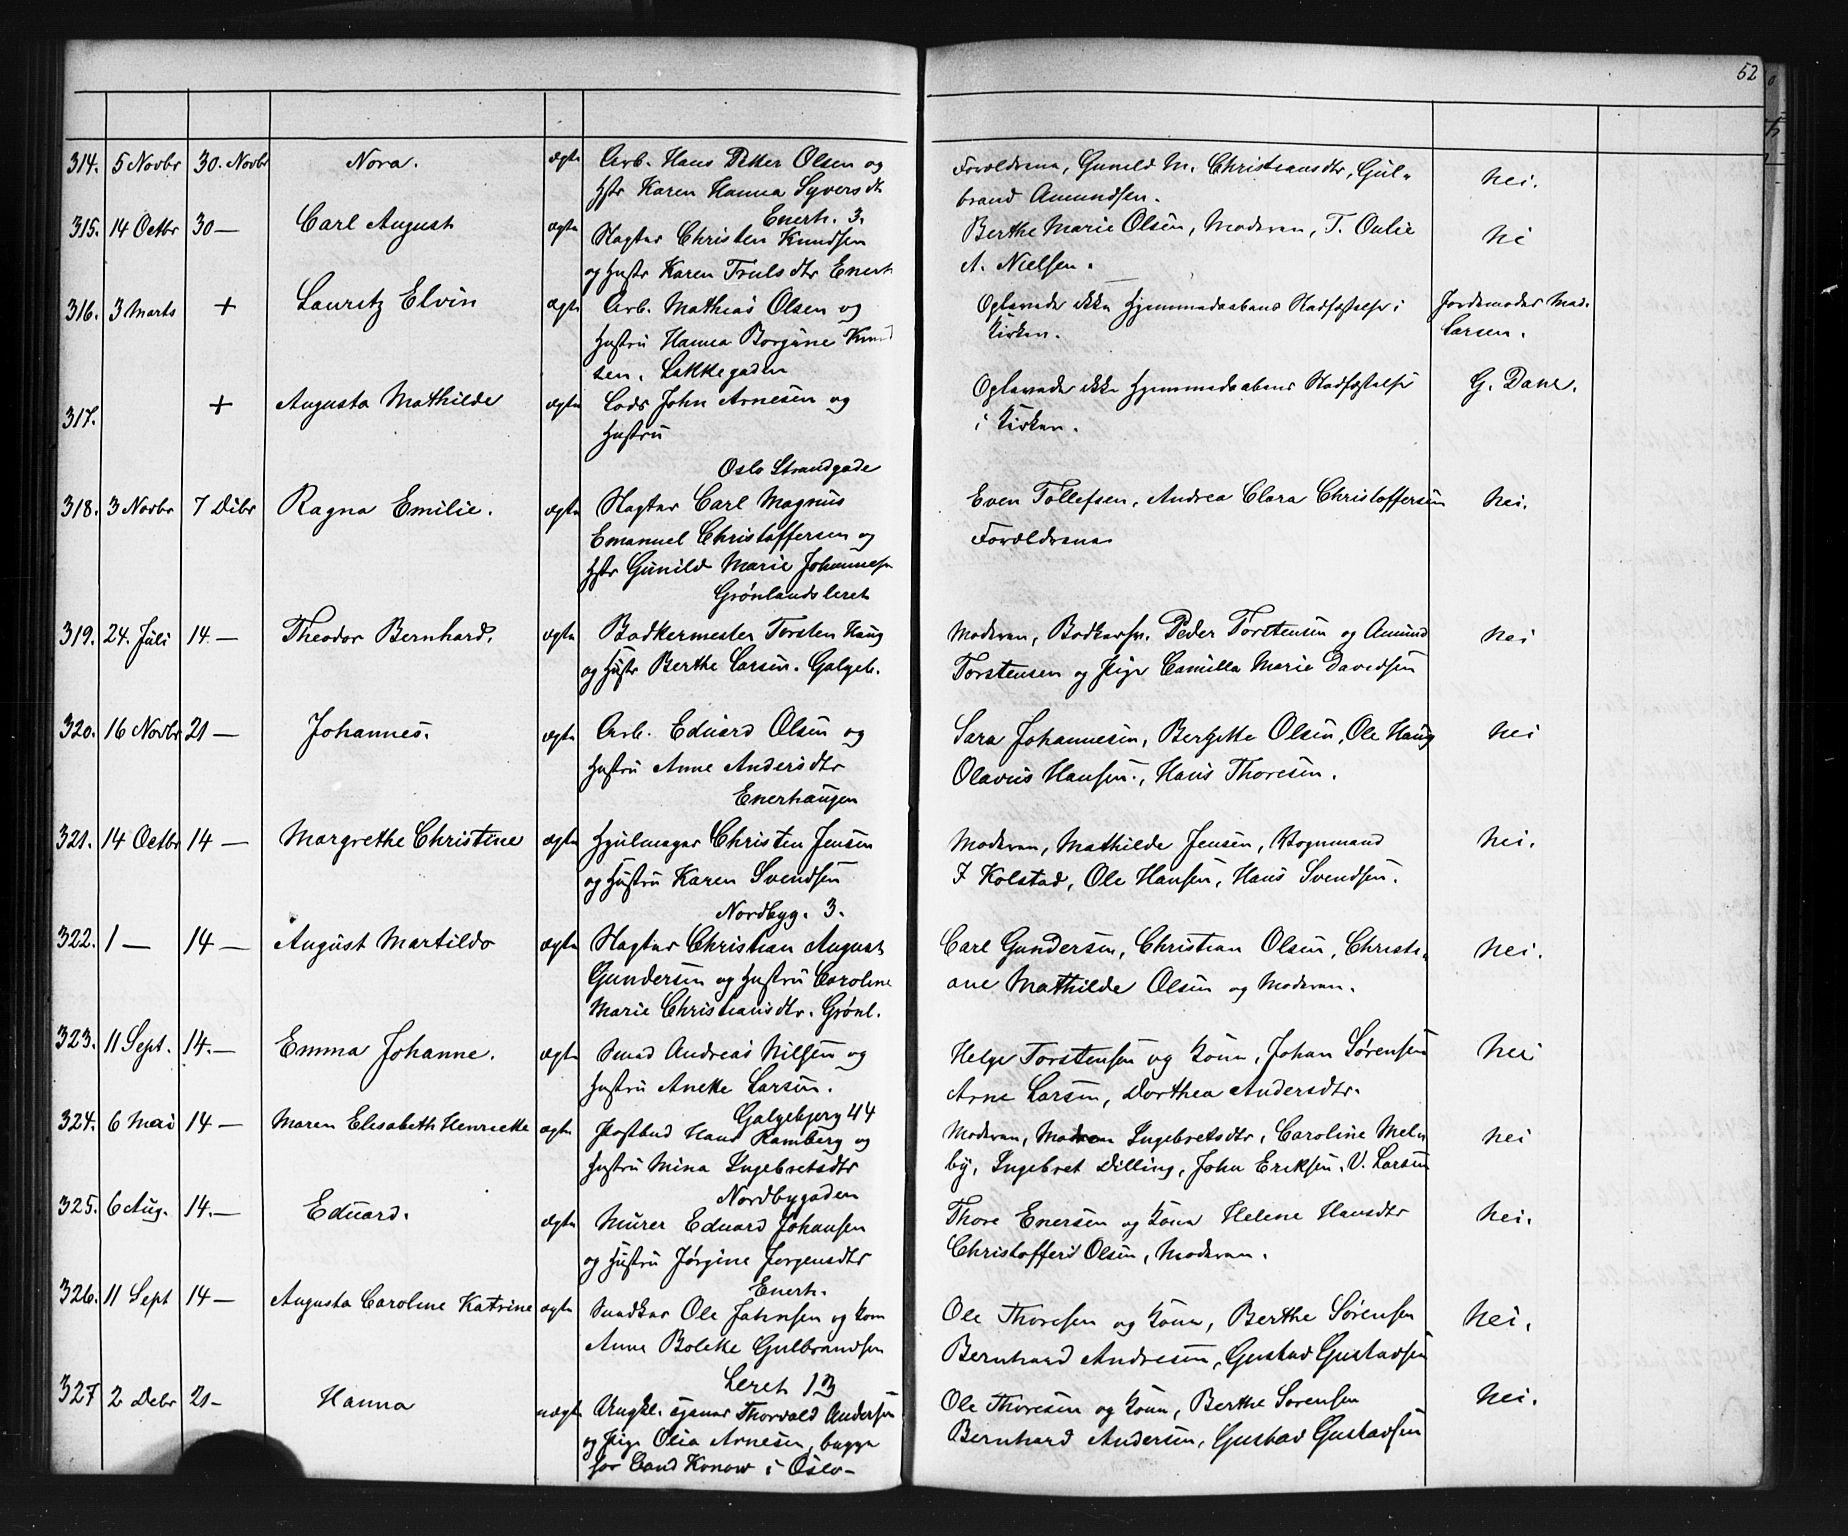 52
314. 5 Novbr 30. Novbr Nora. ægte Arb. Hans Petter Olsen og
Hstr Karen Hanna Syversdtr
Enerh. 3.
Forældrene, Gunild M. Christiansdtr, Gul-
brand Amundsen.
Nei.
315. 14 Octbr 30 — Carl August ægte Slagter Christen Knudsen
og Hustr Karen Trulsdtr Enerh
Berthe Marie Olsen, Moderen, T. Oulie
A. Nielsen.
Nei
316. 3 Marts + Lauritz Elvin ægte Arb. Mathias Olsen og
Hustru Hanna Borgine Knud
sen. Lakkegaden
Oplevede ikke Hjemmedaabens Stadfæstelse i
Kirken.
Jordemoder Mad.
Larsen.
317. + Augusta Mathilde ægte Lods John Arnesen og
Hustru
Oplevede ikke Hjemmedaabens Stadfæstelse
i Kirken.
G. Dane.
Oslo Strandgade
318. 3 Novbr 7 Dcbr Ragna Emilie. ægte Slagter Carl Magnus
Emanuel Christoffersen og
Hstr Gunild Marie Johannesen
Grønlandsleret
Even Tollefsen, Andrea Clara Christoffersen
Forældrene
Nei.
319. 24. Juli 14 — Theodor Bernhard. ægte Bødkermester Torsten Haug
og Hustr Berthe Larsen. Galgeb.
Moderen, Bødkersv. Peder Torstensen og Amund
Torstensen og Pige Camilla Marie Davidsen
Nei
320. 16 Novbr 21 — Johannes. ægte Arb. Eduard Olsen og
Hustru Anne Andersdtr
Enerhaugen
Sara Johannesen, Bergitte Olsen, Ole Haug
Olavus Hansen, Hans Thoresen.
Nei
321. 14 Octbr 14 — Margrethe Christine ægte Hjulmager Christen Jensen
og Hustru Karen Svendsen
Nordbyg. 3.
Moderen, Mathilde Jensen, Vognmand
I Kolstad, Ole Hansen, Hans Svendsen.
Nei.
322. 1 — 14 — August Martildo ægte Slagter Christian August
Gundersen og Hustru Caroline
Marie Christiansdtr. Grønl.
Carl Gundersen, Christian Olsen, Christi-
ane Mathilde Olsen og Moderen.
Nei.
323. 11 Sept. 14. — Emma Johanne. ægte Smed Andreas Nilsen og
Hustru Anette Larsen.
Galgebjerg 44
Helge Torstensen og Kone, Johan Sørensen
Arne Larsen, Dorthea Andersdtr.
Nei
324. 6 Mai 14 — Maren Elisabeth Henriette ægte Postbud Hans Ramberg og
Hustru Mina Ingebretsdtr
Nordbygaden
Moderen, Maren Ingebretsdtr, Caroline Meln
by, Ingebret Dilling, John Eriksen, V. Larsen
Nei
325. 6 Aug. 14. — Eduard. ægte Murer Eduard Johansen
og Hustru Jørgine Jørgensdtr
Enerh.
Thore Enersen og Kone Helene Hansdtr
Christoffer Olsen, Moderen.
Nei.
326. 11 Sept 14 — Augusta Caroline Katrine ægte Snedker Ole Johnsen og Kone
Anne Bolette Gulbrandsen
Leret 13
Ole Thoresen og Kone, Berthe Sørensen
Bernhard Andresen, Gustav Gustavsen
Nei.
327 2 Debr 21 - Hanna uægte Ungkl. Thorvald Andersen
og Pige Olia Arnesen, begge
for Cand Konow i Oslo -
Ole Thoresen og Kone, Berthe Sorensen
Bernhard Andersen, Gustav Gustavsen
Nei.